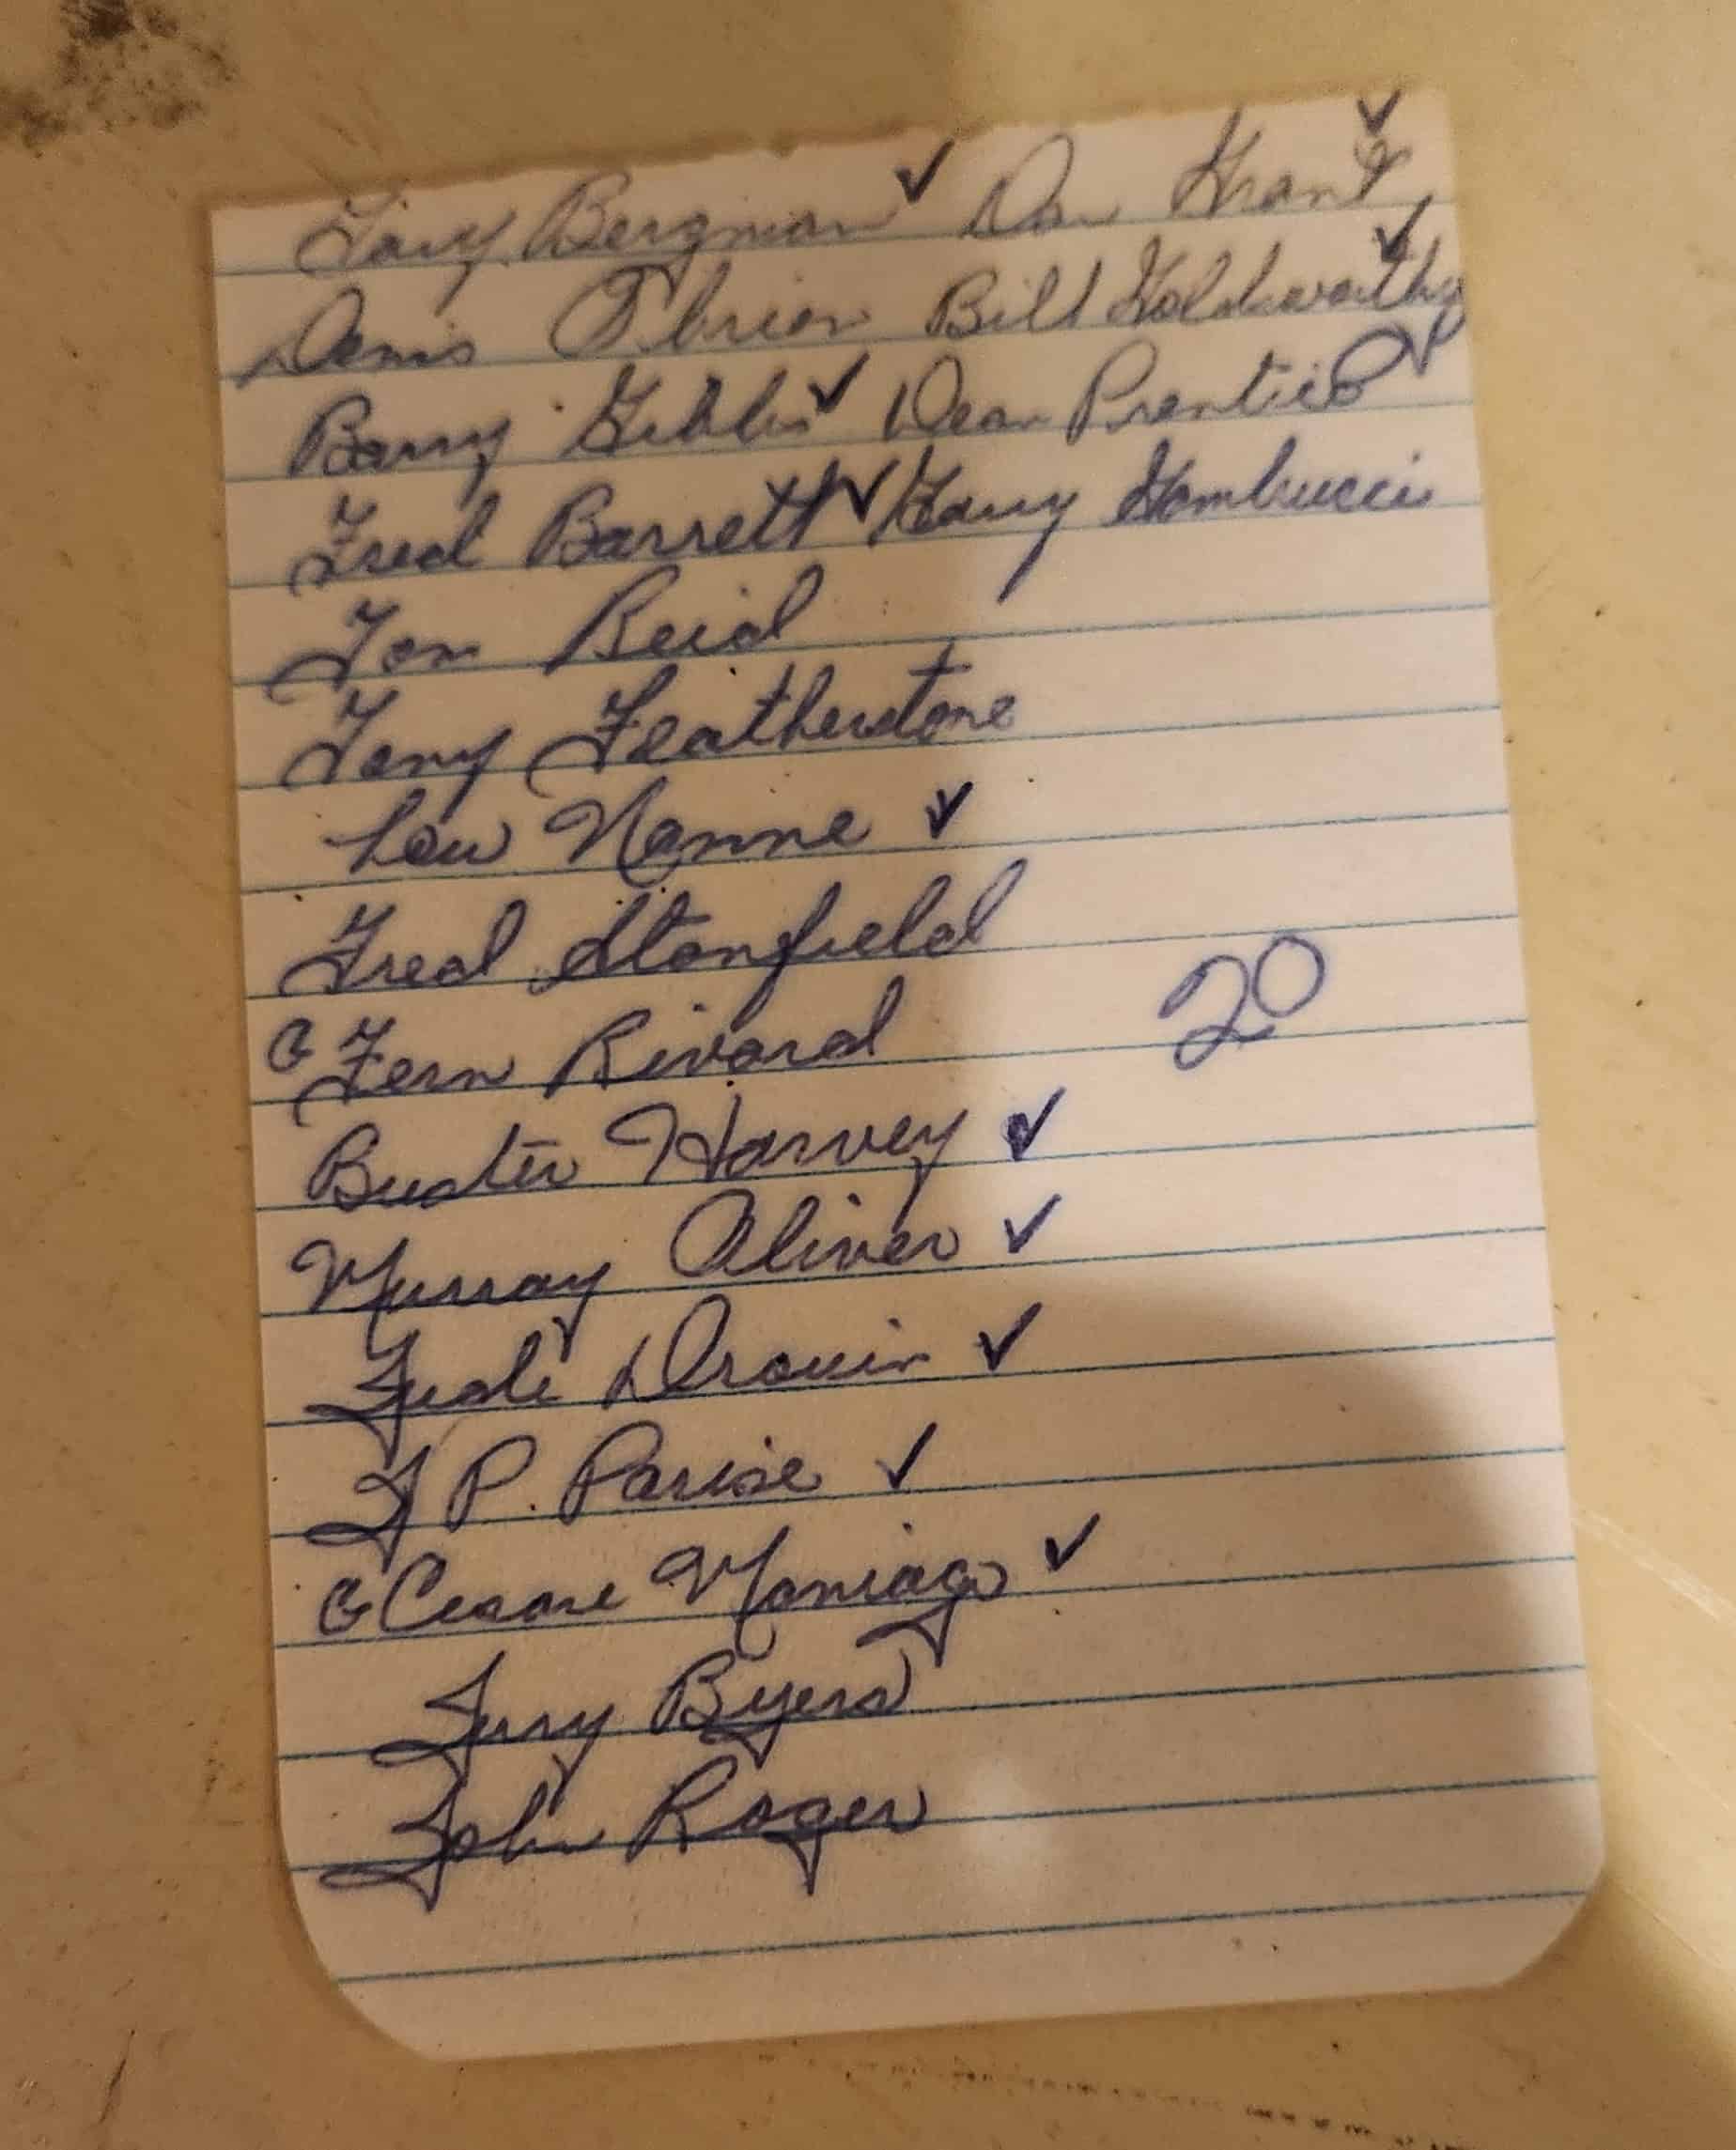 Gary Bergman ✓ Don Grant ✓
Denis O'brien Bill Goldsworthy ✓
Barry Gibbs ✓ Dean Prentice ✓
Fred Barrett ✓ Gary Gambucci
Tom Reid
Tony Featherstone
Lou Nanne ✓
Fred Stanfield
G Fern Rivard
20
Buster Harvey ✓
Murray Oliver ✓
Jude Drouin ✓
J P. Parise ✓
G Cesare Maniago ✓
Jerry Byers
John Roger